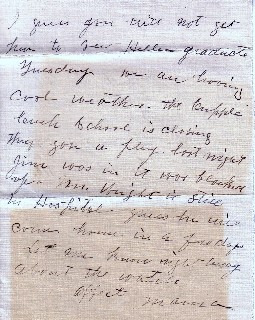 I guess you will not get
here to see Hellen graduate
Tuesday we are having
cool weather. the
School is closing
They gave a play last night
Jim was in it was blacked
Mr. Knight is still
in Hospital guess he will
come home in a few days
Let me know right away
about the watch
Affect Mama